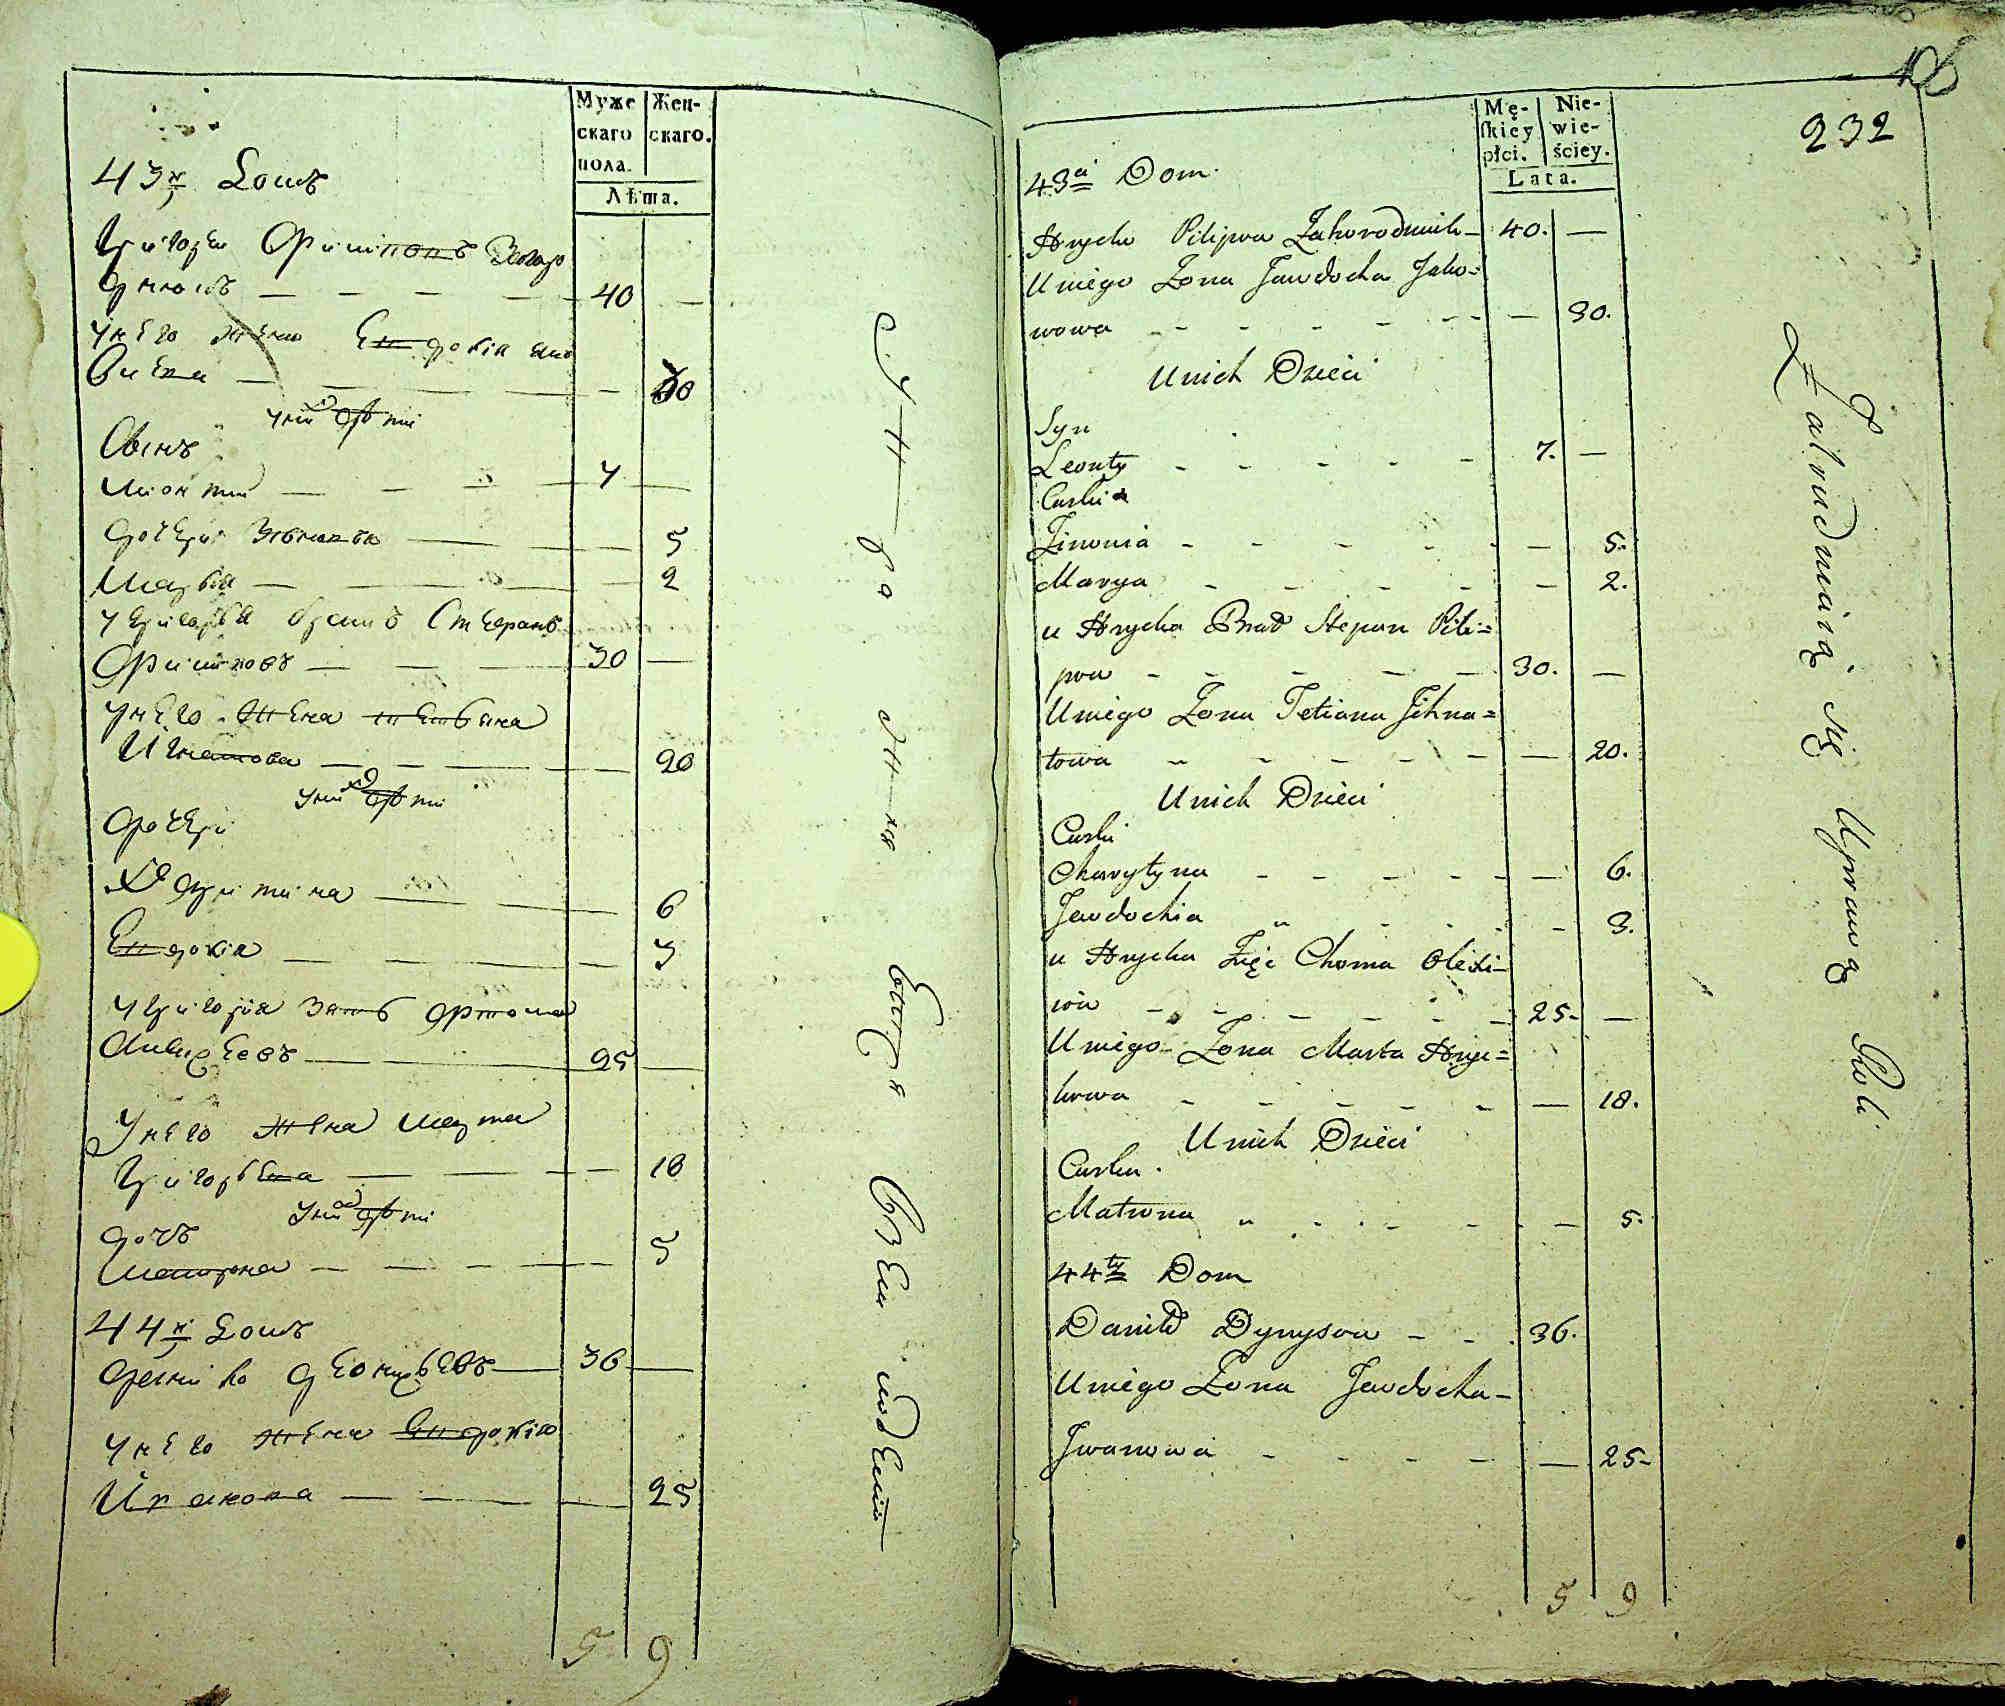 Муже
скаго
пола.
Жен-
скаго.
Лѣта.
43й Домъ
Григорей Филиповъ Загоро
днюкъ — — — — 40 —
У него жена Евдокія Яко
влева — — — — 30
У нихъ дѣти
Сынъ
Леонтий — — — 7 —
Дочери Зѣновѣя — — 5
Марья — — — 2
У Григорья братъ Стефанъ
Филиповъ — — — 30 —
У него жена Татьяна
Игнатова — — — — 20
У нихъ дѣти
Дочери
Харитина — — — 6
Евдокія — — — 3
У Григорія зять Фома
Алексѣевъ — — — 25 —
У него жена Марта
Григорьева — — — — 18
У нихъ дѣти
дочь
Матрона — — — — 5
44й Домъ
Данило Деонисьевъ — 36 —
У него жена Евдокія
Иванова — — — — 25
5 9
232
Mę-
skiey
płci.
Nie-
wie-
ściey.
Lata.
43ci Dom.
Hryćko Pilipow Zahorodniuk — 40. —
U niego Żona Jawdocha Jako=
wowa - - - - - - — 30.
U nich Dzieci
Syn
Leonty - - - - - 7. —
Curki
Zinowia - - - - - — 5.
Marya - - - - - — 2.
u Hryćka Brat Stepan Pili=
pow - - - - - 30. —
U niego Żona Tetiana Jihna=
towa - - - - - — 20.
U nich Dzieci
Curki
Charytyna - - - - - — 6.
Jawdochia - - - - - 3.
u Hryćka Zięć Choma Olexi=
iow - - - - - - 25. —
U niego Żona Marta Hryć=
kowa - - - - - — 18.
U nich Dzieci
Curka.
Matrona - - - - - — 5.
44ty Dom
Daniło Dynysow - - 36.
U niego Żona Jawdocha -
Iwanowa - - - - - — 25.
5 9
Zatrudniaią się Uprawą Roli.